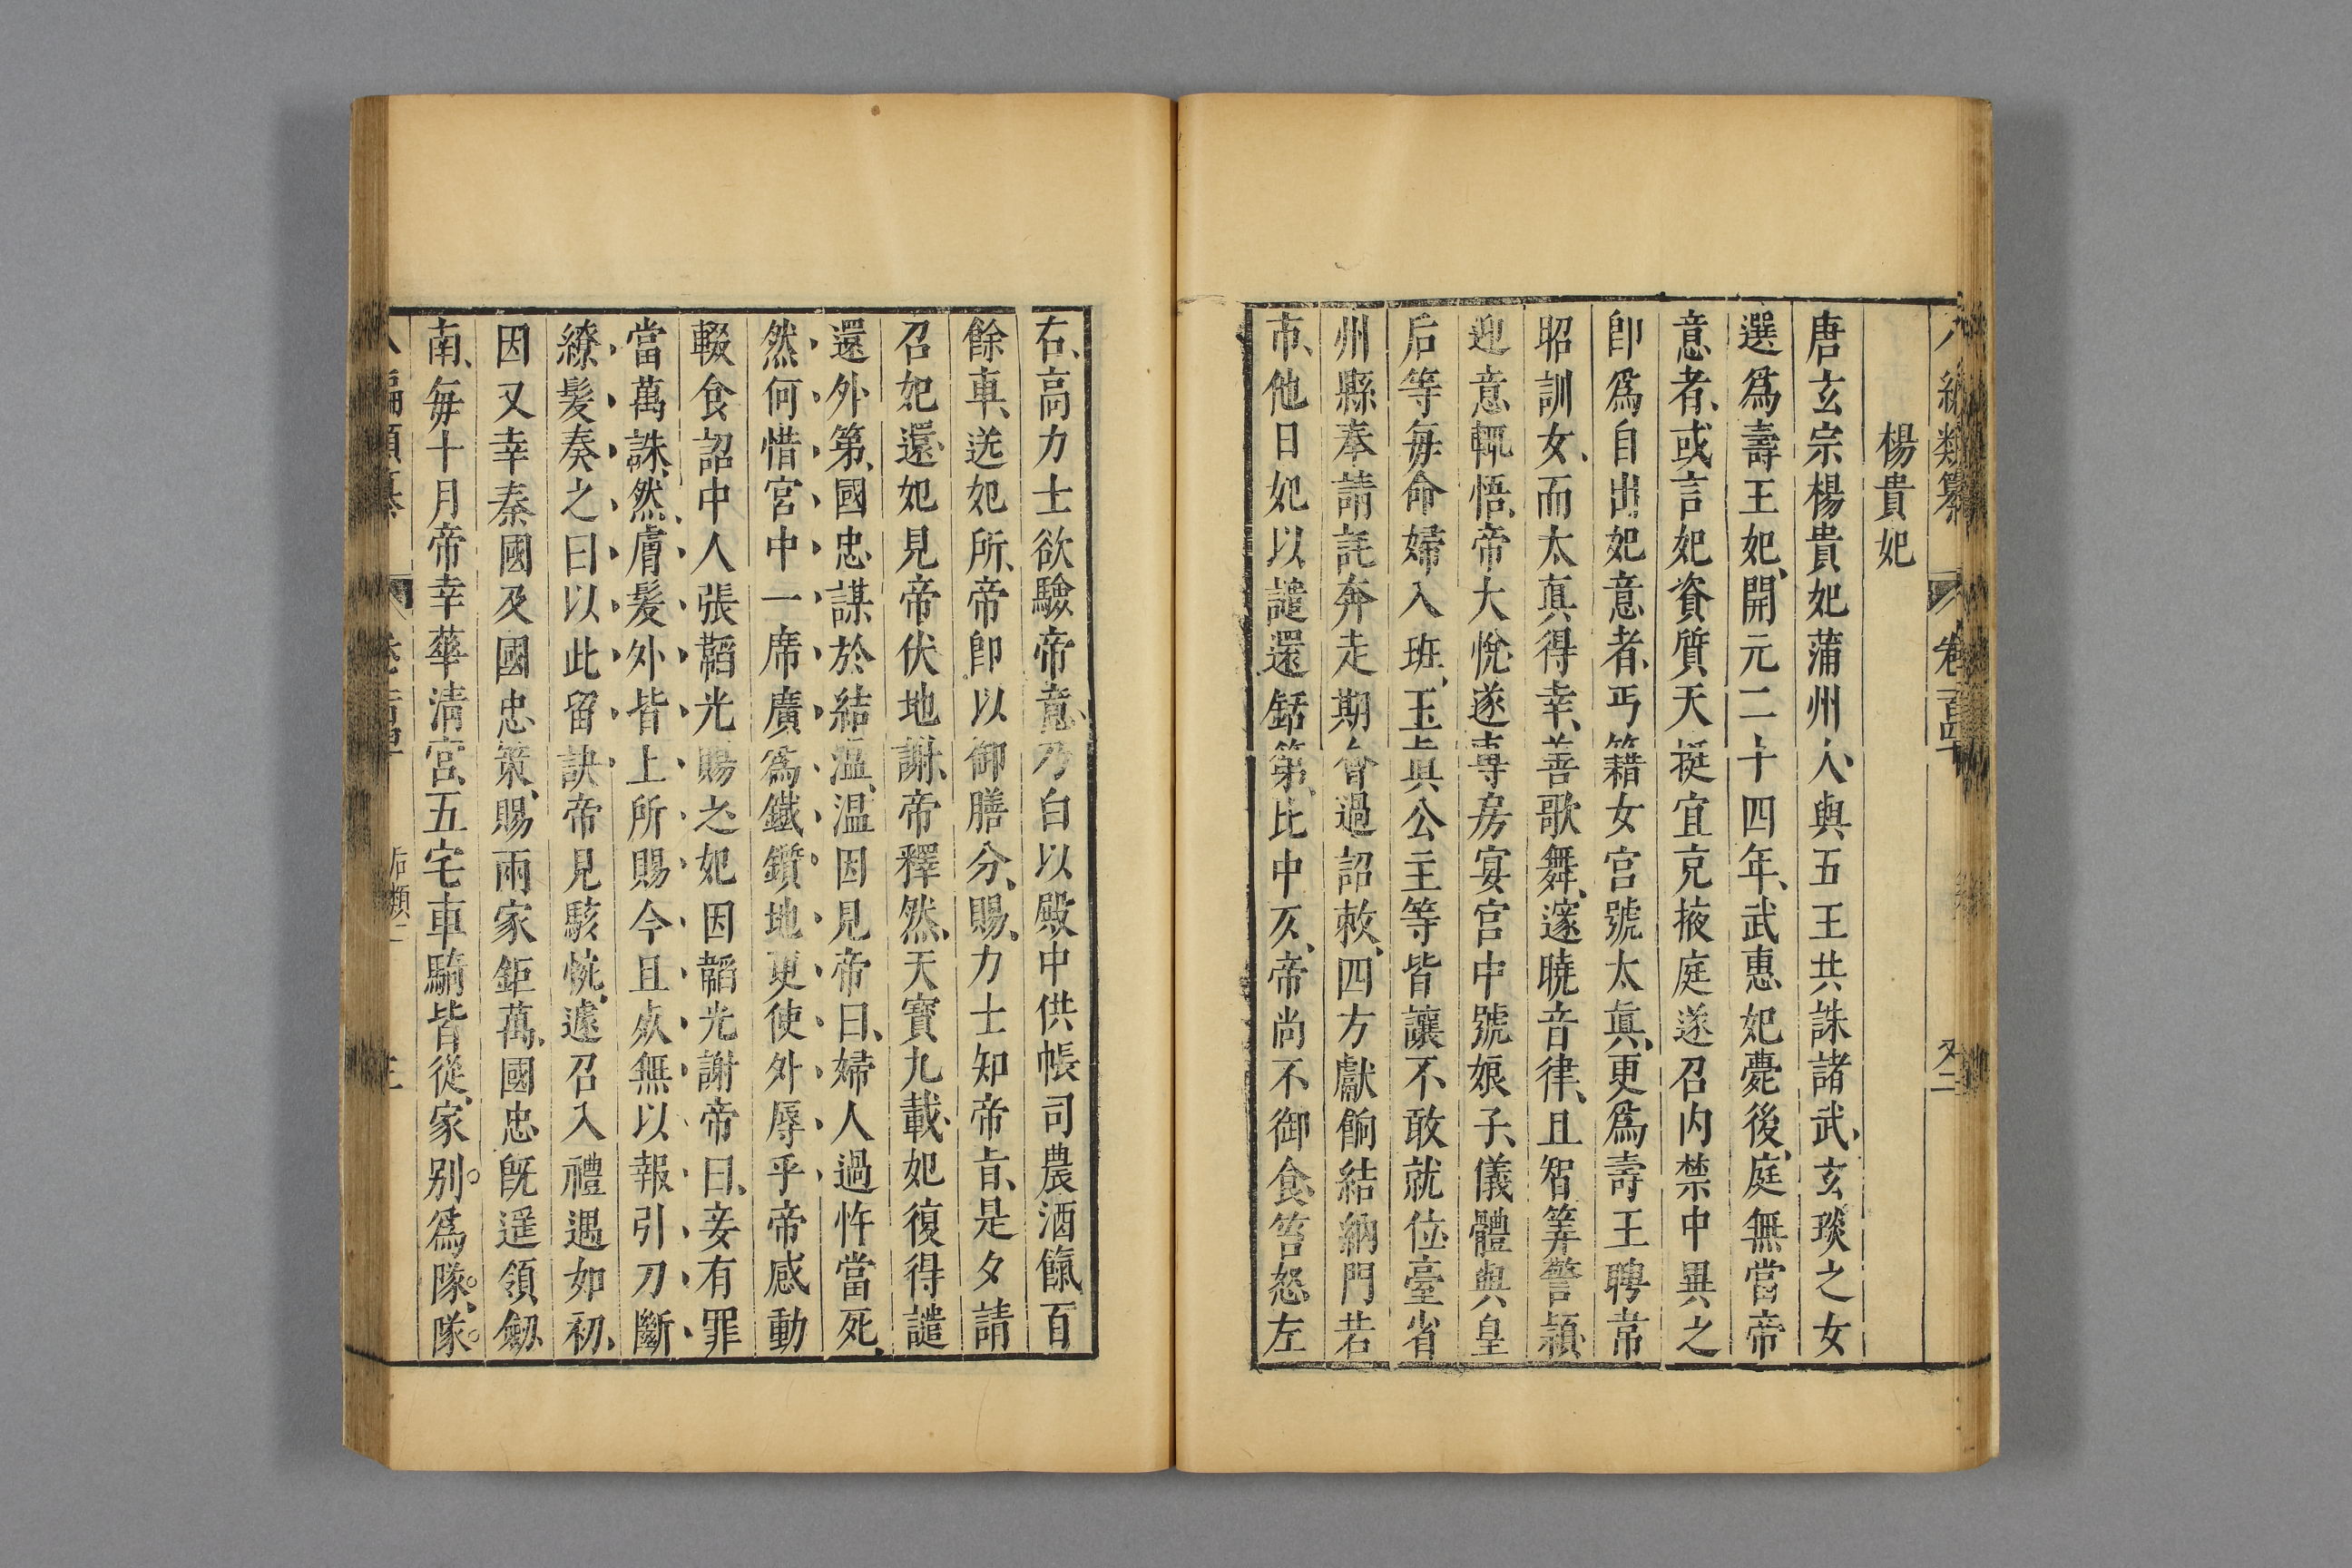 楊貴妃
唐玄宗楊貴妃蒲州人、與五王共誅諸武、玄琰之女
選爲壽王妃、開元二十四年、武惠妃薨後、庭無當帝
意者、或言妃資質天挺宜充掖庭遂召内禁中異之
卽爲自出妃意者、丐籍女官號太眞、更爲壽王聘韋
昭訓女、而太真得幸、善歌舞、邃曉音律、且智筭警頴、
迎意輒悟、帝大悅、遂專房宴宮中號娘子、儀體與皇
后等每命婦入班、玉眞公主等皆讓不敢就位、臺省
州縣奉請託奔走期會過詔敕、四方獻餉結納門若
市、他日妃以譴還銛第、比中仄、帝尚不御食、笞怒、左
右、高力士欲驗帝意、乃白以殿中供帳司農酒餼百
餘車、送妃所、帝卽以御膳分、賜、力士知帝旨、是夕請
召妃還、妃見帝伏地謝、帝釋然、天寳九載、妃復得譴
還外第、國忠謀於結溫、溫因見帝曰、婦人過忤當死、
然何惜宮中一席廣爲鐵鑕地更使外辱乎帝感動
輟食詔中人張韜光賜之妃因韜光謝帝曰、妾有罪
當萬誅、然、膚髮外皆上所賜今且死無以報引刀斷
繚髮奏之曰以此留訣帝見駭惋、遽召入禮遇如初、
因又幸秦國及國忠、策、賜兩家鉅萬、國忠、旣遥領劒
南、每十月帝幸華清宮、五宅車騎皆從、家别。爲隊。、隊。
八編類纂
卷
后類二